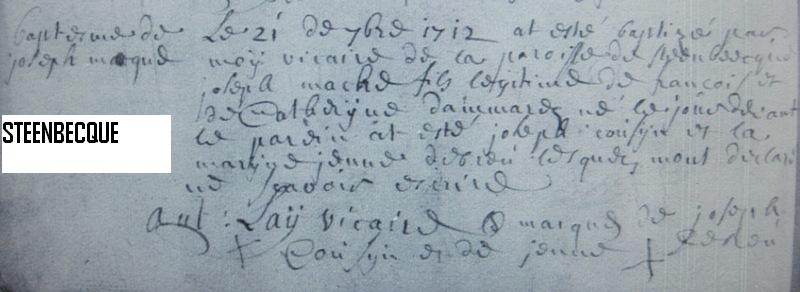 baptesme de
joseph macque
Le 21 de 7bre 1712 at esté baptizé par
moÿ vicaire de la paroisse de steenbecque
joseph macke fils legitime de françois et
de Catherÿne dammarez né le jour devant
le parein at esté joseph cousyn et la
marine jenne derieu lesquez mont declaré
ne scavoir escrire
STEENBECQUE
ant : Laÿ vicaire & marques de joseph
+ Cousyn et de jenne + derieu